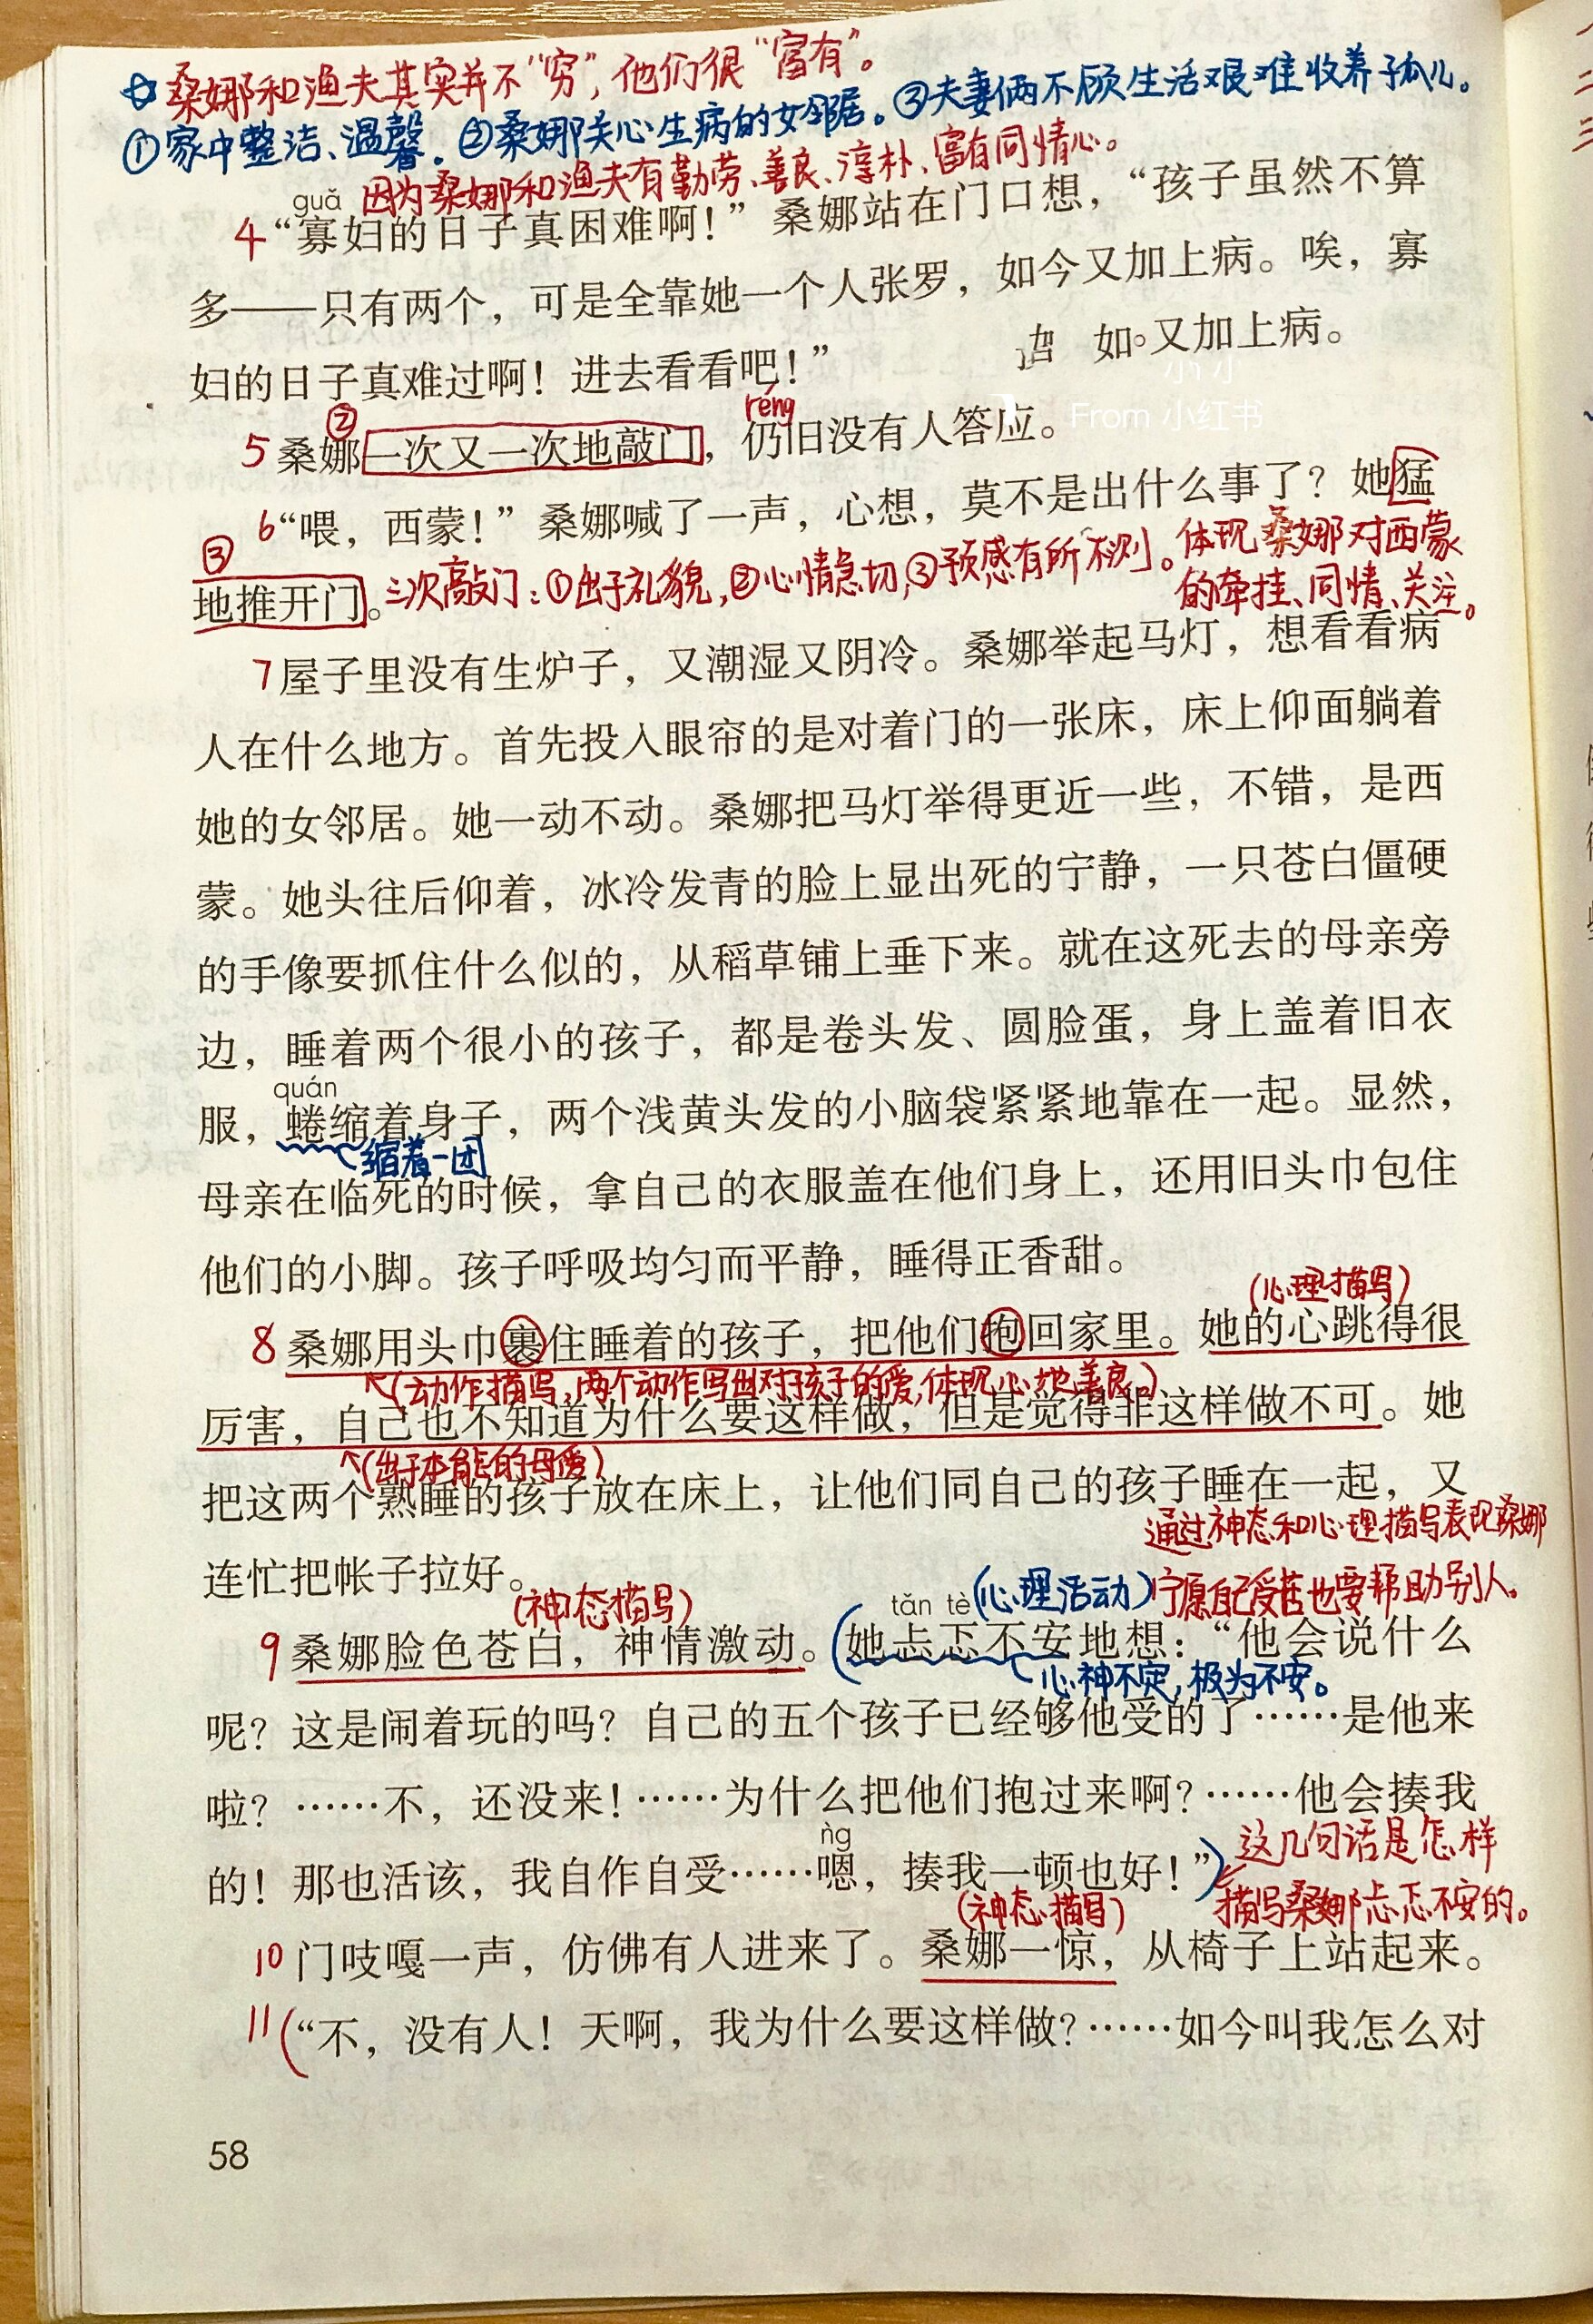 ☆桑娜和渔夫其实并不“穷”，他们很“富有”。
①家中整洁、温馨。②桑娜关心生病的女邻居。③夫妻俩不顾生活艰难收养孤儿。
因为桑娜和渔夫有勤劳、善良、淳朴、富有同情心。
guǎ
4“寡妇的日子真困难啊！”桑娜站在门口想，“孩子虽然不算
多——只有两个，可是全靠她一个人张罗，如今又加上病。唉，寡
如 又加上病。
妇的日子真难过啊！进去看看吧！”
From 小红书
② réng
5 桑娜一次又一次地敲门，仍旧没有人答应。
6“喂，西蒙！”桑娜喊了一声，心想，莫不是出什么事了？她猛
③
地推开门。三次敲门：①出于礼貌，②心情急切，③预感有所不测。体现桑娜对西蒙
的牵挂、同情、关注。
7屋子里没有生炉子，又潮湿又阴冷。桑娜举起马灯，想看看病
人在什么地方。首先投入眼帘的是对着门的一张床，床上仰面躺着
她的女邻居。她一动不动。桑娜把马灯举得更近一些，不错，是西
蒙。她头往后仰着，冰冷发青的脸上显出死的宁静，一只苍白僵硬
的手像要抓住什么似的，从稻草铺上垂下来。就在这死去的母亲旁
边，睡着两个很小的孩子，都是卷头发、圆脸蛋，身上盖着旧衣
quán
服，蜷缩着身子，两个浅黄头发的小脑袋紧紧地靠在一起。显然，
缩着一团
母亲在临死的时候，拿自己的衣服盖在他们身上，还用旧头巾包住
他们的小脚。孩子呼吸均匀而平静，睡得正香甜。
（心理描写）
8 桑娜用头巾裹住睡着的孩子，把他们抱回家里。她的心跳得很
（动作描写，两个动作写出对孩子的爱，体现心地善良。）
厉害，自己也不知道为什么要这样做，但是觉得非这样做不可。她
（出于本能的母爱）
把这两个熟睡的孩子放在床上，让他们同自己的孩子睡在一起，又
通过神态和心理描写表现桑娜
连忙把帐子拉好。
（神态描写） tǎn tè（心理活动）宁愿自己受苦也要帮助别人。
9 桑娜脸色苍白，神情激动。（她忐忑不安地想：“他会说什么
心神不定，极为不安。
呢？这是闹着玩的吗？自己的五个孩子已经够他受的了……是他来
啦？……不，还没来！……为什么把他们抱过来啊？……他会揍我
ǹg
这几句话是怎样
的！那也活该，我自作自受……嗯，揍我一顿也好！”）
（神态描写） 描写桑娜忐忑不安的。
10 门吱嘎一声，仿佛有人进来了。桑娜一惊，从椅子上站起来。
11（“不，没有人！天啊，我为什么要这样做？……如今叫我怎么对
58